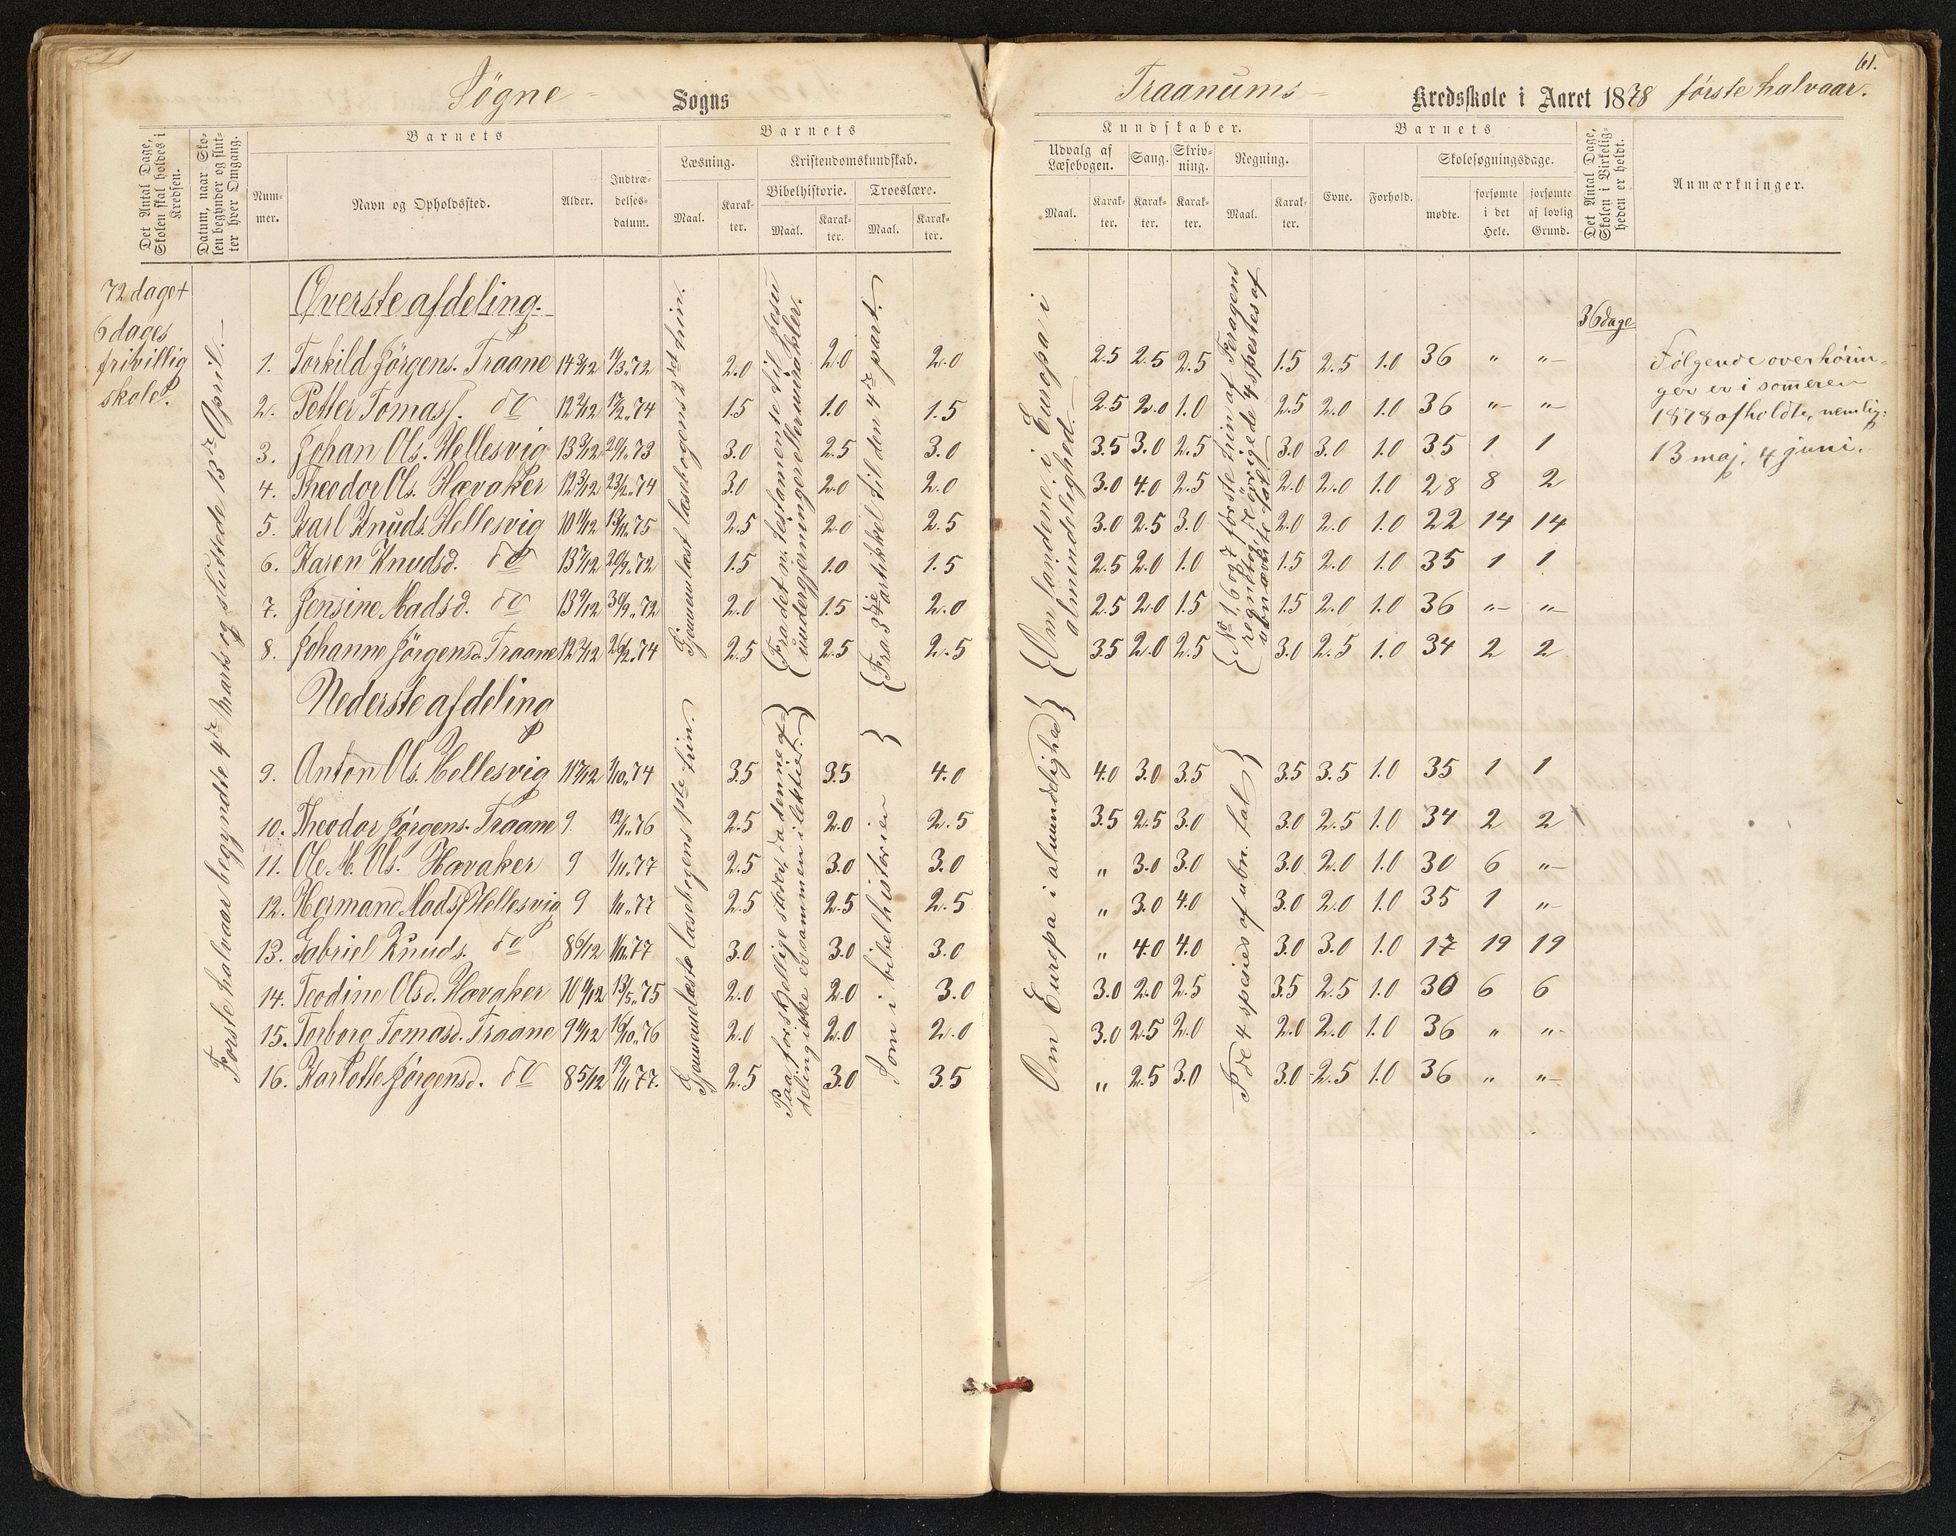 61.
Søgne Sogns
Traanums Kredsskole i Aaret 1878 første halvaar.
Det Antal Dage, Skolen skal holdes i Kredsen.
Datum, naar Skolen begynder og slutter hver Omgang.
Barnets
Nummer.
Navn og Opholdssted.
Alder.
Indtrædelsesdatum.
Barnets
Læsning.
Maal.
Karakter.
Kristendomskundskab.
Bibelhistorie.
Maal.
Karakter.
Troeslære.
Maal.
Karakter.
Kundskaber.
Udvalg af Læsebogen.
Maal.
Karakter.
Sang.
Karakter.
Skrivning.
Karakter.
Regning.
Maal.
Karakter.
Barnets
Evne.
Forhold.
Skolesøgningsdage.
mødte.
forsømte i det Hele.
forsømte af lovlig Grund.
Det Antal Dage, Skolen i Virkeligheden er holdt.
Anmærkninger.
72 dage +
6 dages
frivillig
skole.
Første halvaar begyndte 4de marts og sluttede 13de April.
Øverste afdeling.
36 dage
1. Torkild Jørgens. Traane 14 3/12 1/3.72 2.0 2.0 2.0 2.5 2.5 2.5 1.5 2.5 1.0 36 " "
2. Petter Tomass. do 12 2/12 17/2.74 1.5 1.0 1.5 2.5 2.0 1.0 2.5 2.0 1.0 36 " "
3. Johan Ols. Hellesvig 13 3/12 20/1.73 3.0 2.5 3.0 3.5 3.0 2.5 3.0 3.0 1.0 35 1 1
4. Theodor Ols. Hævaker 12 3/12 23/2.74 3.0 2.0 2.0 3.0 4.0 2.5 2.0 2.0 1.0 28 8 2
5. Karl Knuds. Hellesvig 10 11/12 13/11.75 2.5 2.0 2.5 3.0 2.5 3.0 2.0 2.0 1.0 22 14 14
6. Karen Knudsd. do 13 7/12 20/9.72 1.5 1.0 1.5 2.5 2.0 1.0 1.5 2.0 1.0 35 1 1
7. Jensine Madsd. do 13 9/12 30/9.72 2.0 1.5 2.0 2.5 2.0 1.5 1.5 2.0 1.0 36 " "
8. Johanne Jørgensd. Traane 12 2/12 26/2.74 2.5 2.5 2.5 3.5 2.0 2.5 3.0 2.5 1.0 34 2 2
Gjennemlæst læsebogens 2det trin.
Fra det n. testamente til Jesu
undergjerninger eller mirakler.
Fra 3die artikkel til den 4de part.
Om landene i Europa i
almindelighed.
No 1, 6 og 7 første trin af Feragens
regnebog, de øvrige de 4 spesies af
ubnævnte tal
Følgende overhørin-
ger er i someren
1878 afholdte, nemlig:
13 maj, 4 juni.
Nederste afdeling
9. Anton Ols. Hellesvig 11 7/12 1/10.74 3.5 3.5 4.0 4.0 3.0 3.5 3.5 3.5 1.0 35 1 1
10. Theodor Jørgens. Traane 9 12/11.76 2.5 2.0 2.5 3.5 2.5 3.0 3.0 2.5 1.0 34 2 2
11. Ole M. Ols. Hævaker 9 1/11.77 2.5 3.0 3.0 " 3.0 3.0 3.0 2.0 1.0 30 6 "
12. Hermand Mads. Hellesvig 9 1/11.77 2.5 2.5 2.5 " 3.0 4.0 3.0 2.0 1.0 35 1 "
13. Gabriel Knuds. do 8 6/12 1/11.77 3.0 3.0 3.0 " 4.0 4.0 3.0 3.0 1.0 17 19 19
14. Teodine Olsd. Hævaker 10 11/12 13/5.75 2.0 2.0 3.0 3.0 2.0 2.5 3.5 2.5 1.0 30 6 6
15. Torborg Tomasd. Traane 9 11/12 16/10.76 2.0 2.0 2.0 3.0 2.5 2.0 2.0 2.0 1.0 36 " "
16. Karlotte Jørgensd. do 8 5/12 19/11.77. 2.5 3.0 3.5 " 2.5 3.0 3.0 2.5 1.0 36 " "
Gjennemlæste læsebogens 1ste trin.
Paa forskjellige steder, da denne af-
deling ikke er sammen i lektier.
Som i bibelhistorien
Om Europa i almindelighed
I de 4 spesies af ubn. tal